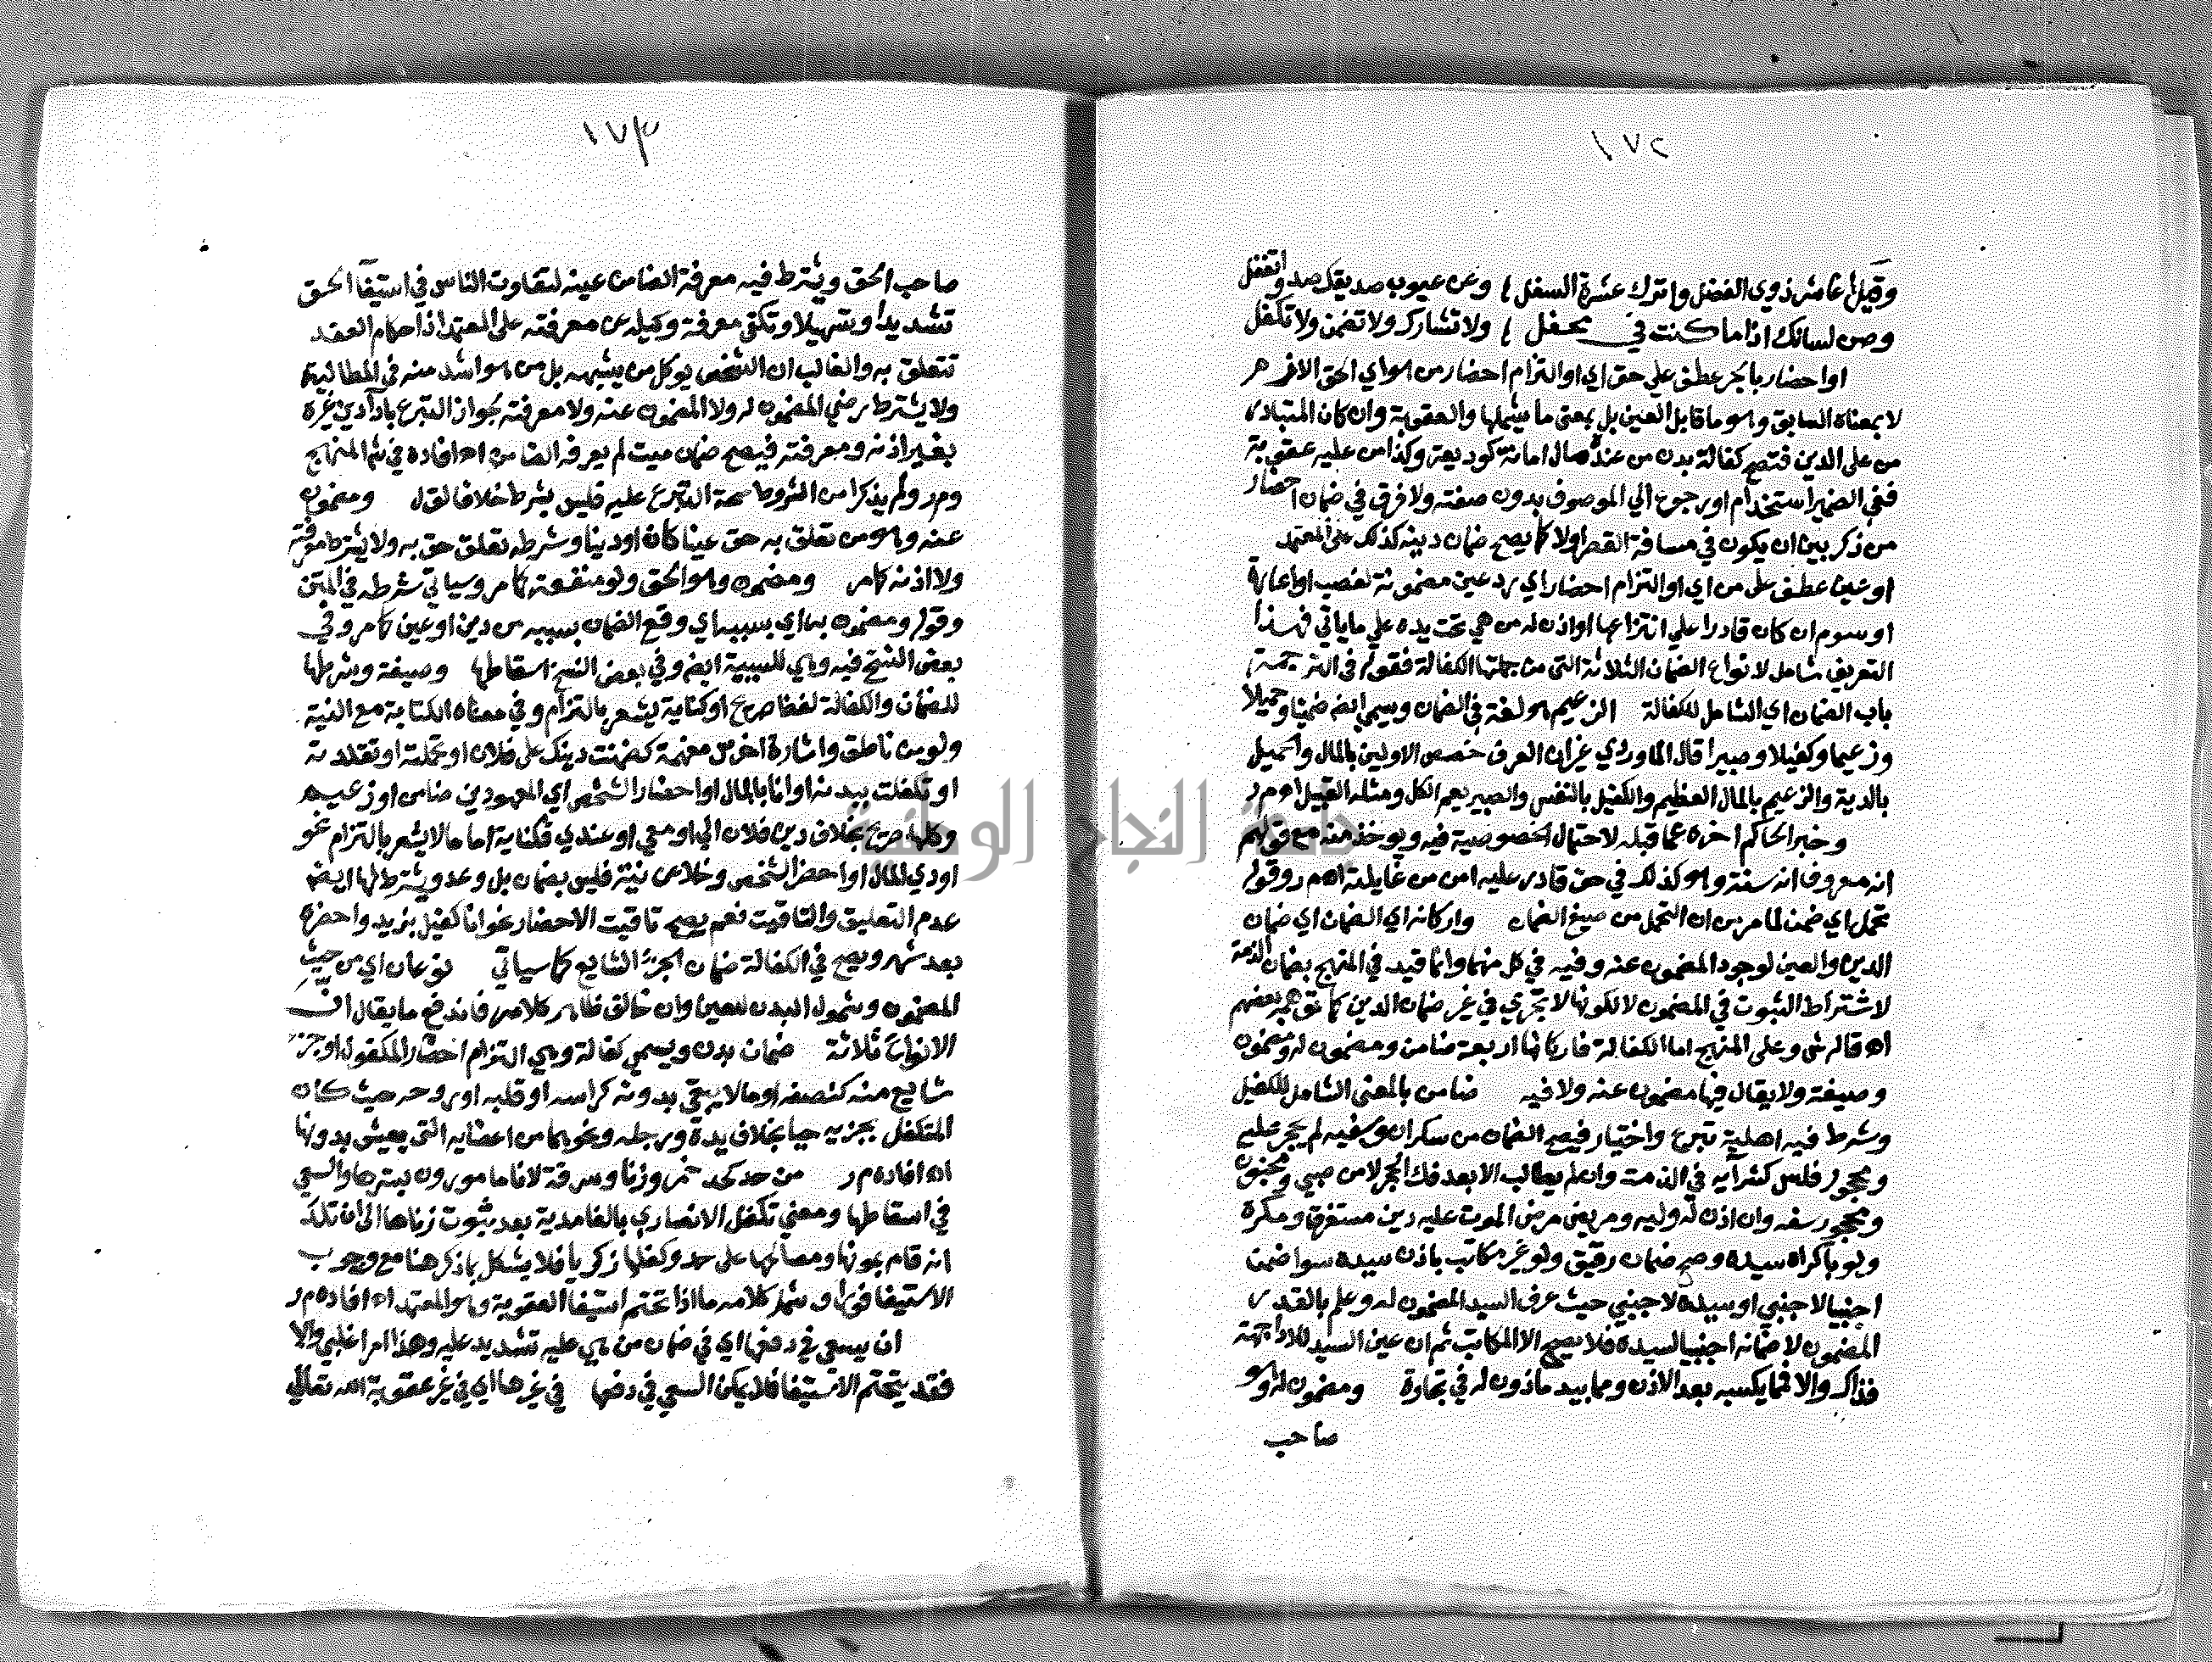 ١٧٢
وقيل عاشر ذوي الفضل واترك عشرة السفل وعن عيوب صديقك صد وتغفل
وصن لسانك اذا ما كنت في محفل ولا تشارك ولا تضمن ولا تكفل
او احضار بالجر عطف على حق اي او التزام احضار من هو اي الحق الاخر هو
لا بمعناه السابق وهو ما قابل العين بل بمعنى ما يشملها والعقوبة وان كان المتبادر
من على الدين فتصح كفالة بدن من عنده مال امانة كوديعة وكذا من عليه عقوبة
ففي الضمير استخدام او رجوع الي الموصوف بدون صفته ولا فرق في ضمان احضار
من ذكر بين ان يكون في مسافة القصر اولا كما يصح ضمان دينه كذلك على المعتمد
او عين عطف على من اي او التزام احضار اي رد عين مضمونة كغصب او اعارة
او سوم ان كان قادرا علي انتزاعها او اذن له من هي تحت يده علي ما ياتي فهذا
التعريف شامل لانواع الضمان الثلاثة التي من جملتها الكفالة فقوله في الترجمة
باب الضمان اي الشامل للكفالة الزعيم هو لغة في الضمان ويسمي ايضا ضمينا وحميلا
وزعيما وكفيلا وصبيرا قال الماوردي غير ان العرف خصص الاولين بالمال والحميل
بالدية والزعيم بالمال العظيم والكفيل بالنفس والصبير يعم الكل ومثله القبيل اه م ر
وخبر الحاكم اخره عما قبله لاحتمال الخصوصية فيه ويوخذ منه مع قولهم
انه معروف انه سنة وهو كذلك في حق قادر عليه امن من غايلته اه م ر وقوله
تحمل اي ضمن لما مر من ان التحمل من صيغ الضمان واركانه اي الضمان اي ضمان
الدين والعين لوجود المضمون عنه وفيه في كل منهما وانما قيد في المنهج بضمان الذمة
لاشتراط الثبوت في المضمون لا لكونها لا تجري في غير ضمان الدين كما توهمه بعضهم
اه قاله ش وعلى المنهج اما الكفالة فاركانها اربعة ضامن ومضمون له ومضمون
وصيغة ولا يقال فيها مضمون عنه ولا فيه ضامن بالمعنى الشامل للكفيل
وشرط فيه اهلية تبرع واختيار فيصح الضمان من سكران وسفيه لم يحجر عليه
ومحجور فلس كشرائه في الذمة وان لم يطالب الا بعد فك الحجر لا من صبي ومجنون
ومحجور سفه وان اذن له وليه ومريض مرض الموت عليه دين مستغرق ومكره
ولو باكراه سيده وصح ضمان رقيق ولو غير مكاتب باذن سيده سوا ضمن
اجنبيا لاجنبي او سيده لاجنبي حيث عرف السيد المضمون له وعلم بالقدر
المضمون لا ضمانه اجنبيا لسيده فلا يصح الا المكاتب ثم ان عين السيد للاداء جهة
فذاك والا فمما يكسبه بعد الاذن ومما بيد ماذون له في تجارة ومضمون له وهو
صاحب
١٧٣
صاحب الحق ويشترط فيه معرفة الضامن عينه لتفاوت الناس في استيفاء الحق
تشديدا وتسهيلا وتكفي معرفة وكيله عن معرفته على المعتمد اذ احكام العقد
تتعلق به والغالب ان الشخص يوكل من يشبهه بل من هو اشد منه في المطالبة
ولا يشترط رضي المضمون له ولا المضمون عنه ولا معرفته لجواز التبرع باداء دين غيره
بغير اذنه ومعرفته فيصح ضمان ميت لم يعرفه الضامن اه افاده في شرح المنهج
وم ر ولم يذكرا من الشروط صحة التبرع عليه فليس بشرط خلافا لق ل ومضمون
عنه وهو من تعلق به حق عينا كان او دينا وشرطه تعلق حق به ولا يشترط معرفته
ولا اذنه كما مر ومضمون وهو الحق ولو منفعة كما مر وسياتي شرطه في المتن
وقوله ومضمون به اي بسببه اي وقع الضمان بسببه من دين او عين كما مر وفي
بعض النسخ فيه وهي للسببية ايضا وفي بعض النسخ اسقاطها وصيغة وشرطها
للضمان والكفالة لفظا صريح او كناية يشعر بالتزام وفي معناه الكتابة مع النية
ولو من ناطق واشارة اخرس مفهمة كضمنت دينك على فلان او تحملته او تقلدته
او تكفلت ببدنه او انا بالمال او احضار الشخص اي المعهودين ضامن او زعيم
وكلها صريح بخلاف دين فلان الي او معي او عندي فكناية اما ما لا يشعر بالتزام نحو
اودي المال او احضر الشخص وخلا من نية فليس بضمان بل وعد ويشترط لها ايضا
عدم التعليق والتاقيت نعم يصح تاقيت الاحضار نحو انا كفيل بزيد واحضره
بعد شهر ويصح في الكفالة ضمان الجزء الشايع كما سياتي نوعان اي من حيث
المضمون وشمول البدن للعين وان خالف ظاهر كلامهم فاندفع ما يقال ان
الانواع ثلاثة ضمان بدن ويسمي كفالة وهي التزام احضار المكفول او جزء
شايع منه كنصفه او ما لا يبقى بدونه كراسه او قلبه او روحه حيث كان
المتكفل بجزيه حيا بخلاف يده ورجله ونحوهما من اعضايه التي يعيش بدونها
اه افاده م ر من حد كحد خمر وزنا وسرقة لانا مامورون بسترها والسعي
في اسقاطها ومعني تكفل الانصاري بالغامدية بعد ثبوت زناها الى ان تلد
انه قام بمونها ومصالحها على حد وكفلها زكريا فلا يشكل بما ذكر هنا مع وجوب
الاستيفا فورا وشمل كلامه ما اذا تحتم استيفا العقوبة وهو المعتمد اه افاده م ر
ان يسعى في دفعها اي في ضمان من هي عليه تشديد عليه وهذا امر اغلبي والا
فقد يتحتم الاستيفا فلا يمكن السعي في دفعها في غيرها اي في غير عقوبة الله تعالى
جامعة النجاح الوطنية